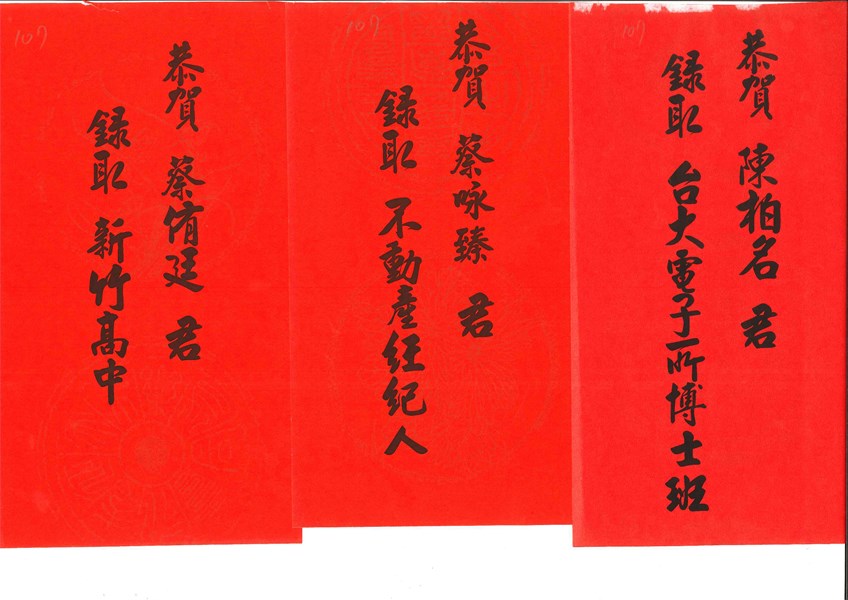 107
恭賀 陳柏名 君
録取 台大電子所博士班
107
恭賀 蔡咏臻 君
録取 不動產經紀人
107
恭賀 蔡侑廷 君
録取 新竹高中